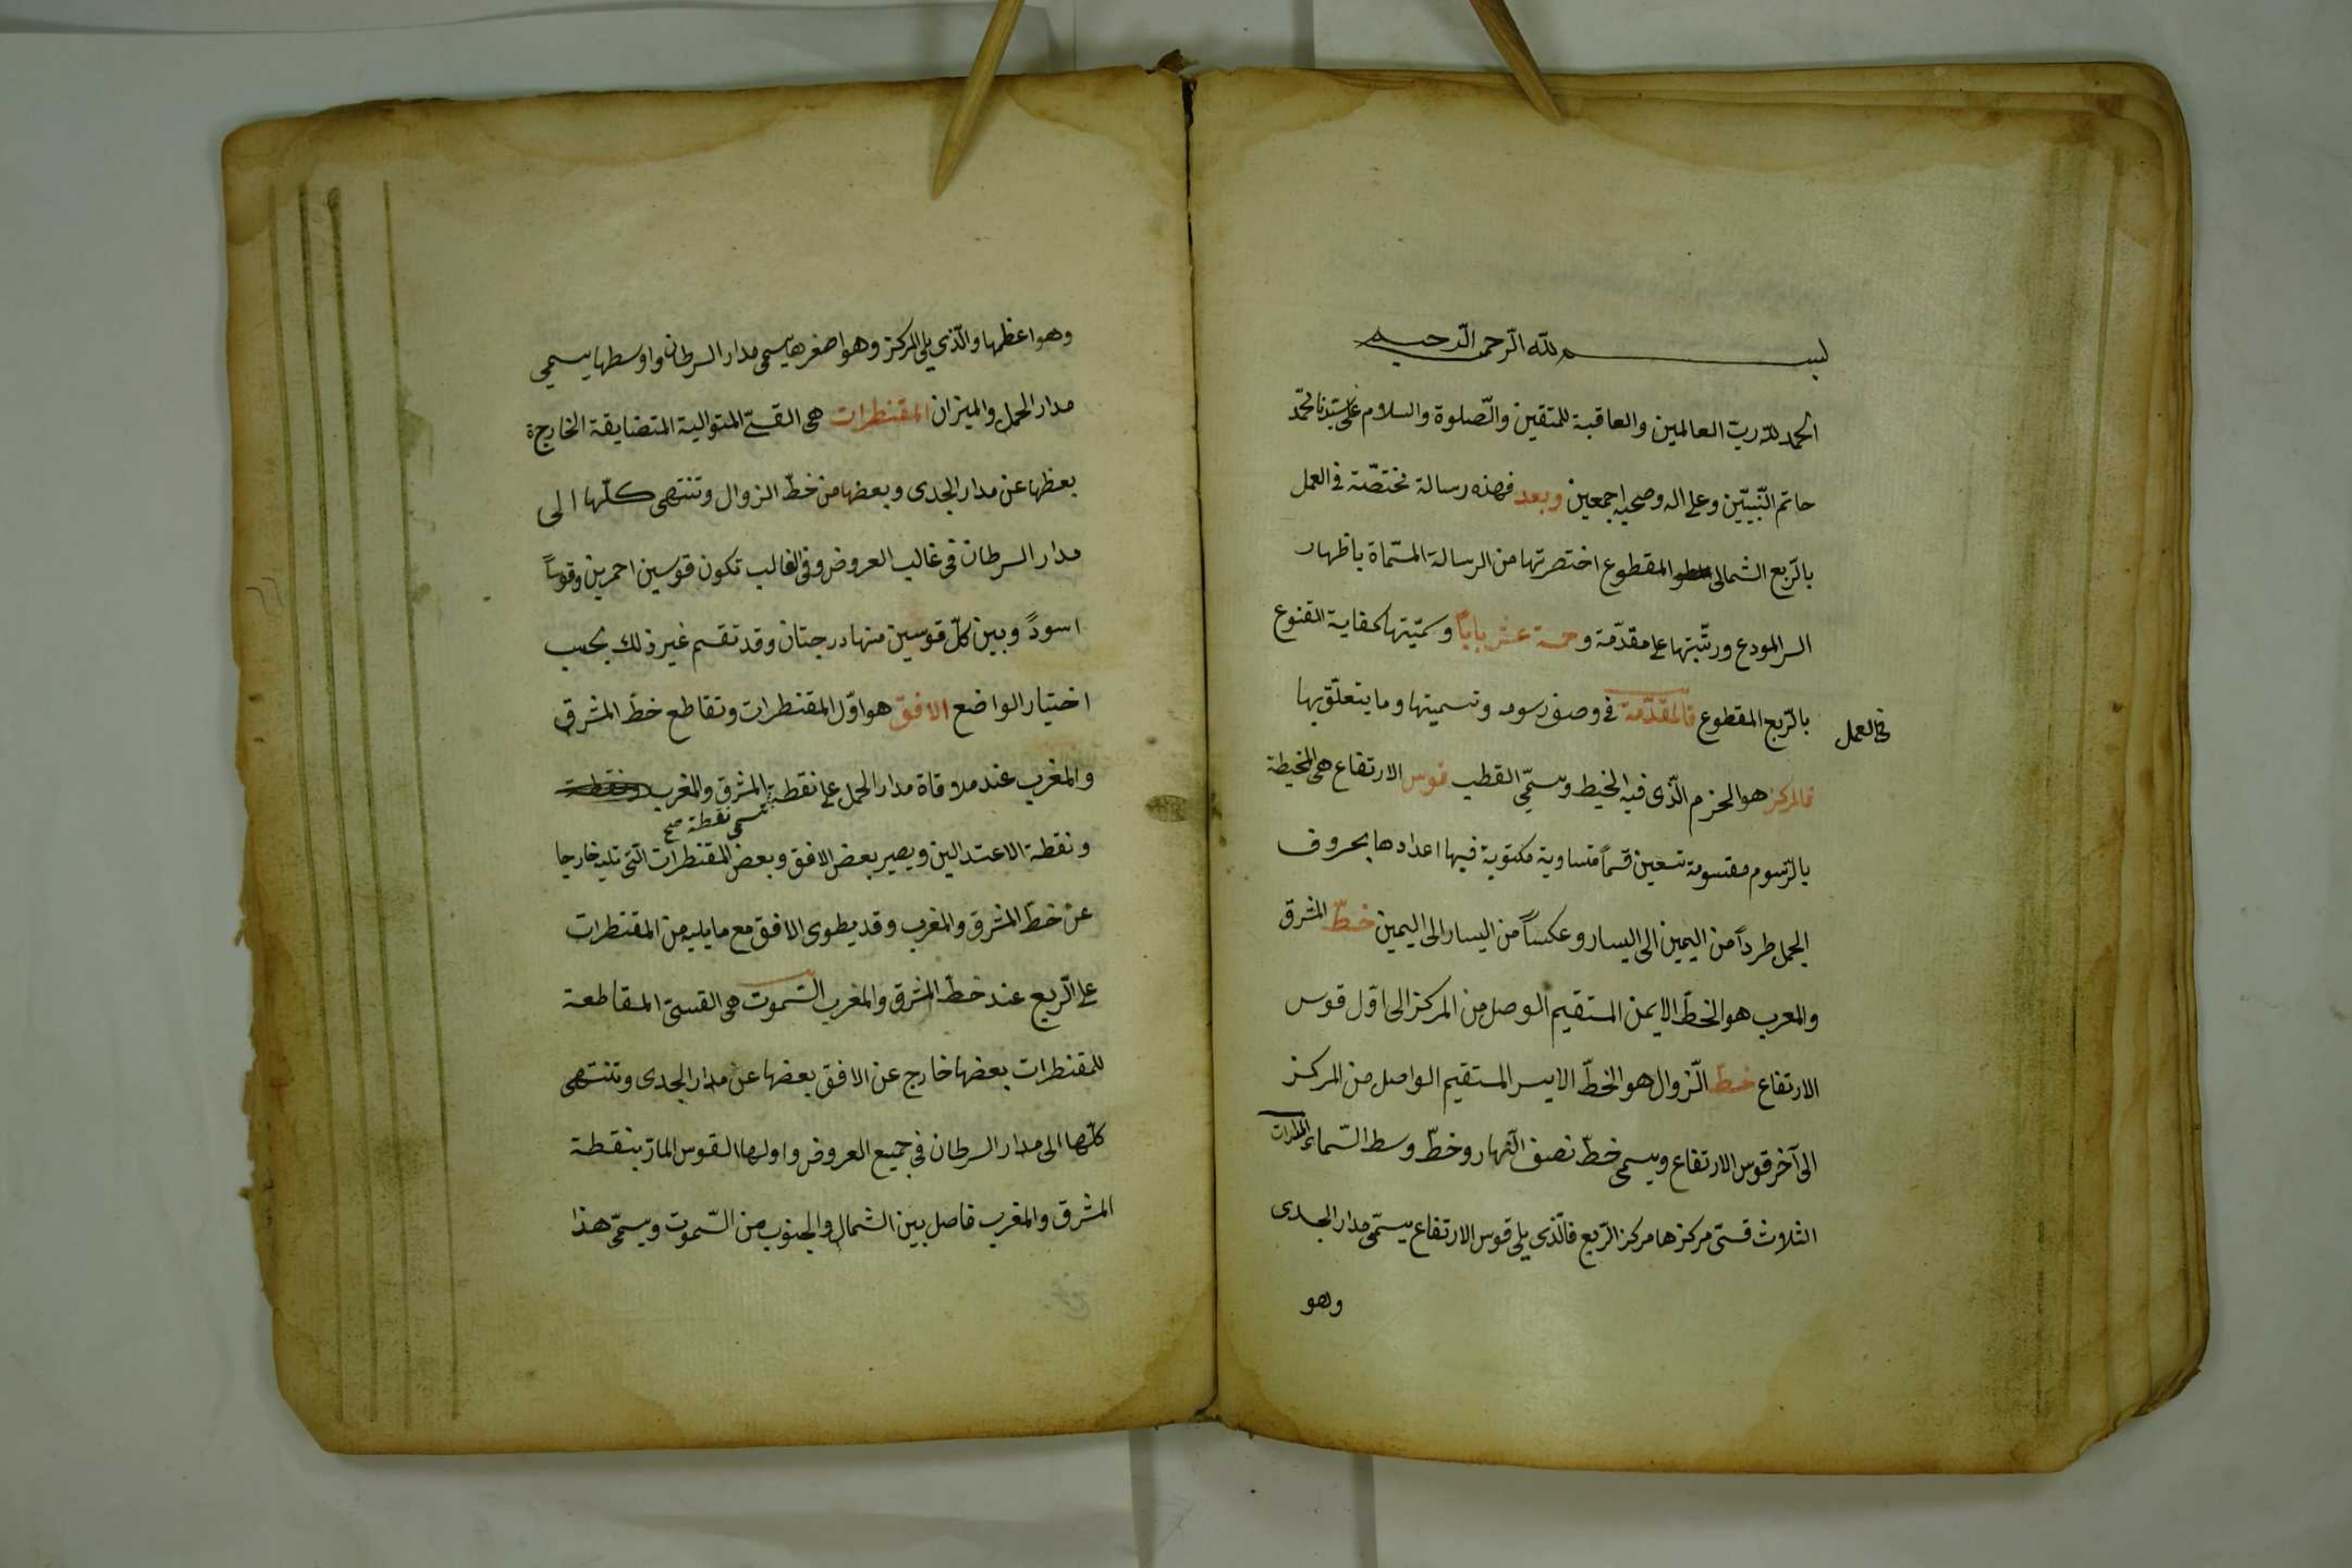 بسم الله الرّحمن الرّحيم
الحمد لله ربّ العالمين والعاقبة للمتقين والصّلوة والسلام على سيّدنا محمّد
خاتم النّبيّين وعلى اله وصحبه اجمعين وبعد فهذه رسالة مختصّة في العمل
بالرّبع الشمالى المقطوع اختصرتها من الرسالة المسمّاة باظهار
السر المودع ورتّبتها على مقدّمة وخمسة عشر باباً وسمّيتها كفاية القنوع
في العمل
بالرّبع المقطوع فالمقدّمة في وصف رسومه وتسميتها وما يتعلّق بها
فالمركز هو الخرم الّذى فيه الخيط ويسمّى القطب قوس الارتفاع هى المحيطة
بالرّسوم مقسومة تسعين قسماً متساوية مكتوبة فيها اعدادها بحروف
الجمل طرداً من اليمين الى اليسار وعكساً من اليسار الى اليمين خطّ المشرق
والمغرب هو الخطّ الايمن المستقيم الوصل من المركز الى اوّل قوس
الارتفاع خطّ الزّوال هو الخطّ الايسر المستقيم الواصل من المركز
الى آخر قوس الارتفاع ويسمى خطّ نصف النّهار وخطّ وسط السّماء المدارات
الثلاث قسىّ مركزها مركز الرّبع فالّذى يلى قوس الارتفاع يسمّى مدار الجدى
وهو
وهو اعظمها والّذى يلى المركز وهو اصغرها يسمى مدار السرطان واوسطها يسمى
مدار الحمل والميزان المقنطرات هى القسىّ المتوالية المتضايقة الخارجة
بعظها عن مدار الجدى وبعضها من خطّ الزوال وتنتهى كلّها الى
مدار السرطان فى غالب العروض وفى الغالب تكون قوسين احمرين وقوساً
اسودً وبين كلّ قوسين منها درجتان وقد تقسم غير ذلك بحسب
اختيار الواضع الافق هو اوّل المقنطرات وتقاطع خطّ المشرق
والمغرب عند ملاقاة مدار الحمل على نقطة المشرق والمغرب ونقطة
تسمى نقطة صح
ونقطة الاعتدالين ويصير بعض الافق وبعض المقنطرات الّتى تليه خارجا
عن خطّ المشرق والمغرب وقد يطوى الافق مع ما يليه من المقنطرات
على الرّبع عند خطّ المشرق والمغرب السّموت هى القسىّ المقاطعة
للمقنطرات بعضها خارج عن الافق بعضها عن مدار الجدى وتنتهى
كلّها الى مدار السرطان فى جميع العروض واولها القوس المارّ بنقطة
المشرق والمغرب فاصل بين الشمال والجنوب من السّموت ويسمّى هذا